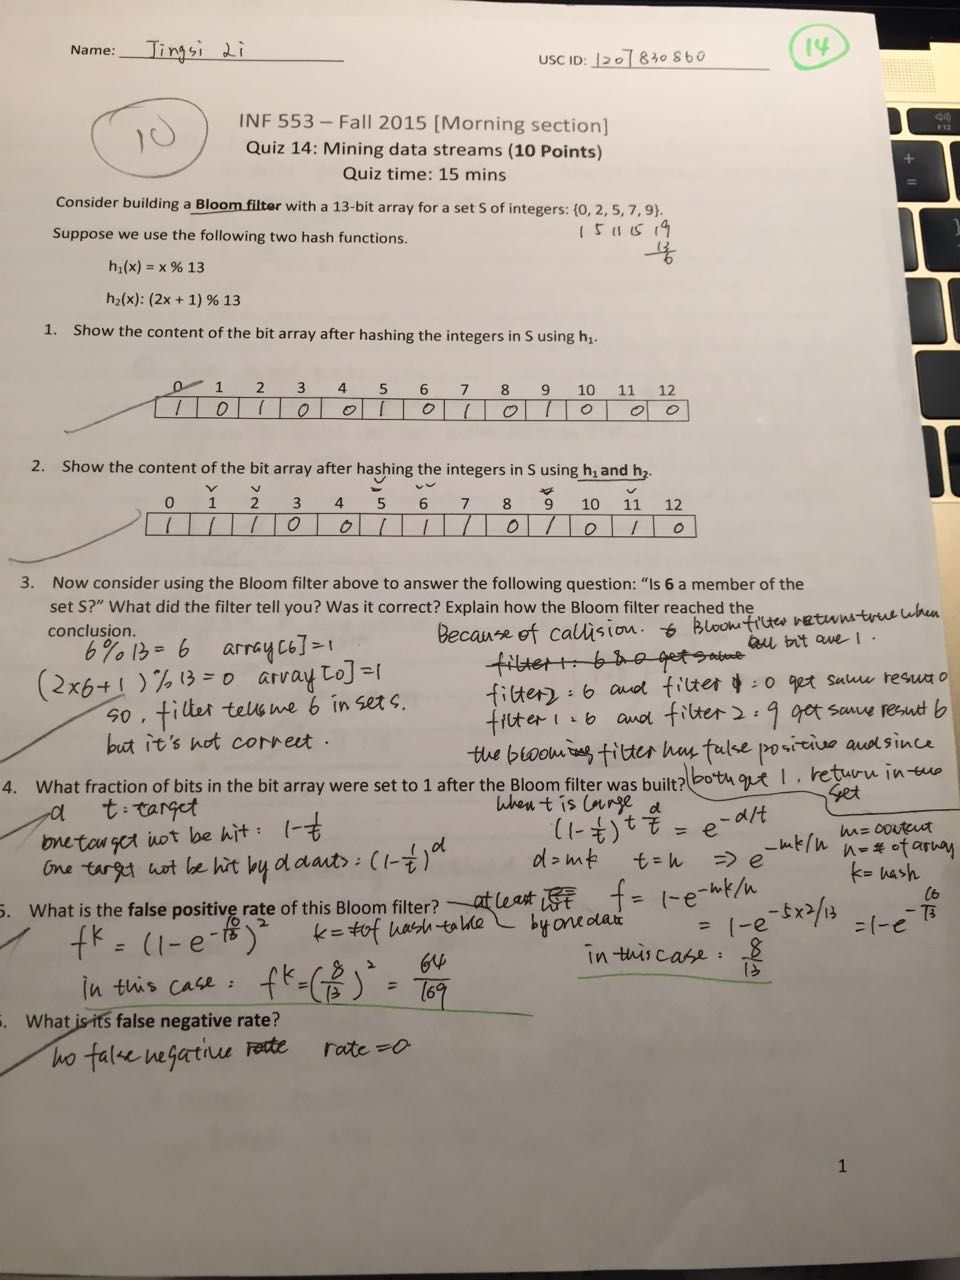 Name: Jingsi Li
USC ID: 1207830860
14
10
INF 553 – Fall 2015 [Morning section]
Quiz 14: Mining data streams (10 Points)
Quiz time: 15 mins
Consider building a Bloom filter with a 13-bit array for a set S of integers: {0, 2, 5, 7, 9}.
1 5 11 15 19
13
6
Suppose we use the following two hash functions.
h₁(x) = x % 13
h₂(x): (2x + 1) % 13
1. Show the content of the bit array after hashing the integers in S using h₁.
0 1 2 3 4 5 6 7 8 9 10 11 12
1 0 1 0 0 1 0 1 0 1 0 0 0
2. Show the content of the bit array after hashing the integers in S using h₁ and h₂.
0 1 2 3 4 5 6 7 8 9 10 11 12
1 1 1 0 0 1 1 1 0 1 0 1 0
3. Now consider using the Bloom filter above to answer the following question: “Is 6 a member of the
set S?” What did the filter tell you? Was it correct? Explain how the Bloom filter reached the
conclusion.
6 % 13 = 6 array[6]=1
(2x6+1) % 13 = 0 array[0]=1
so, filter tells me 6 in set S.
but it's not correct.
Because of callision. Bloom filter returns true when
all bit are 1.
filter 1: 6 & 0 get same
filter2: 6 and filter 1: 0 get same result 0
filter 1: 6 and filter 2: 9 get same result 6
the blooming filter has false positive and since
both get 1, return in the
set
4. What fraction of bits in the bit array were set to 1 after the Bloom filter was built?
d t: target
one target not be hit: 1-1/t
One target not be hit by d darts: (1-1/t)^d
when t is large
(1-1/t)^(t d/t) = e^(-d/t)
d=mk t=n => e^(-mk/n)
m=content
n=# of array
k=hash
at least
by one dart
f = 1-e^(-mk/n)
= 1-e^(-5x2/13) = 1-e^(-10/13)
in this case: 8/13
5. What is the false positive rate of this Bloom filter?
f^k = (1-e^(-10/13))^2 k=# of hash table
in this case: f^k=(8/13)^2 = 64/169
6. What is its false negative rate?
no false negative rate rate=0
1
F12
+
=